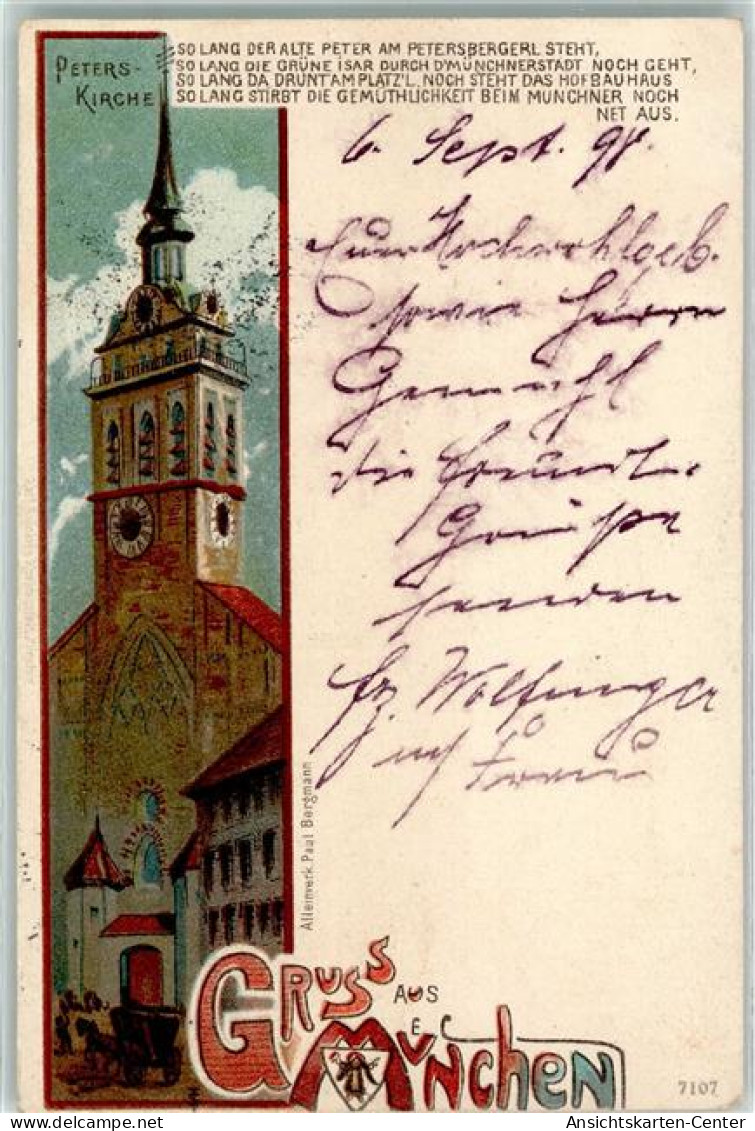 PETERS-
KIRCHE
SO LANG DER ALTE PETER AM PETERSBERGERL STEHT,
SO LANG DIE GRÜNE ISAR DURCH D'MÜNCHNERSTADT NOCH GEHT,
SO LANG DA DRUNT AM PLATZ'L NOCH STEHT DAS HOFBAUHAUS
SO LANG STIRBT DIE GEMÜTHLICHKEIT BEIM MÜNCHNER NOCH
NET AUS.
6. Sept. 98.
Euer Hochwohlgeb.
sowie Herrn
Gemahl
die freundl.
Grüße
senden
Fz. Wolfinger
u. Frau
Alleinverk. Paul Bergmann
GRUSS
AUS
MÜNCHEN
7107
Ansichtskarten-Center